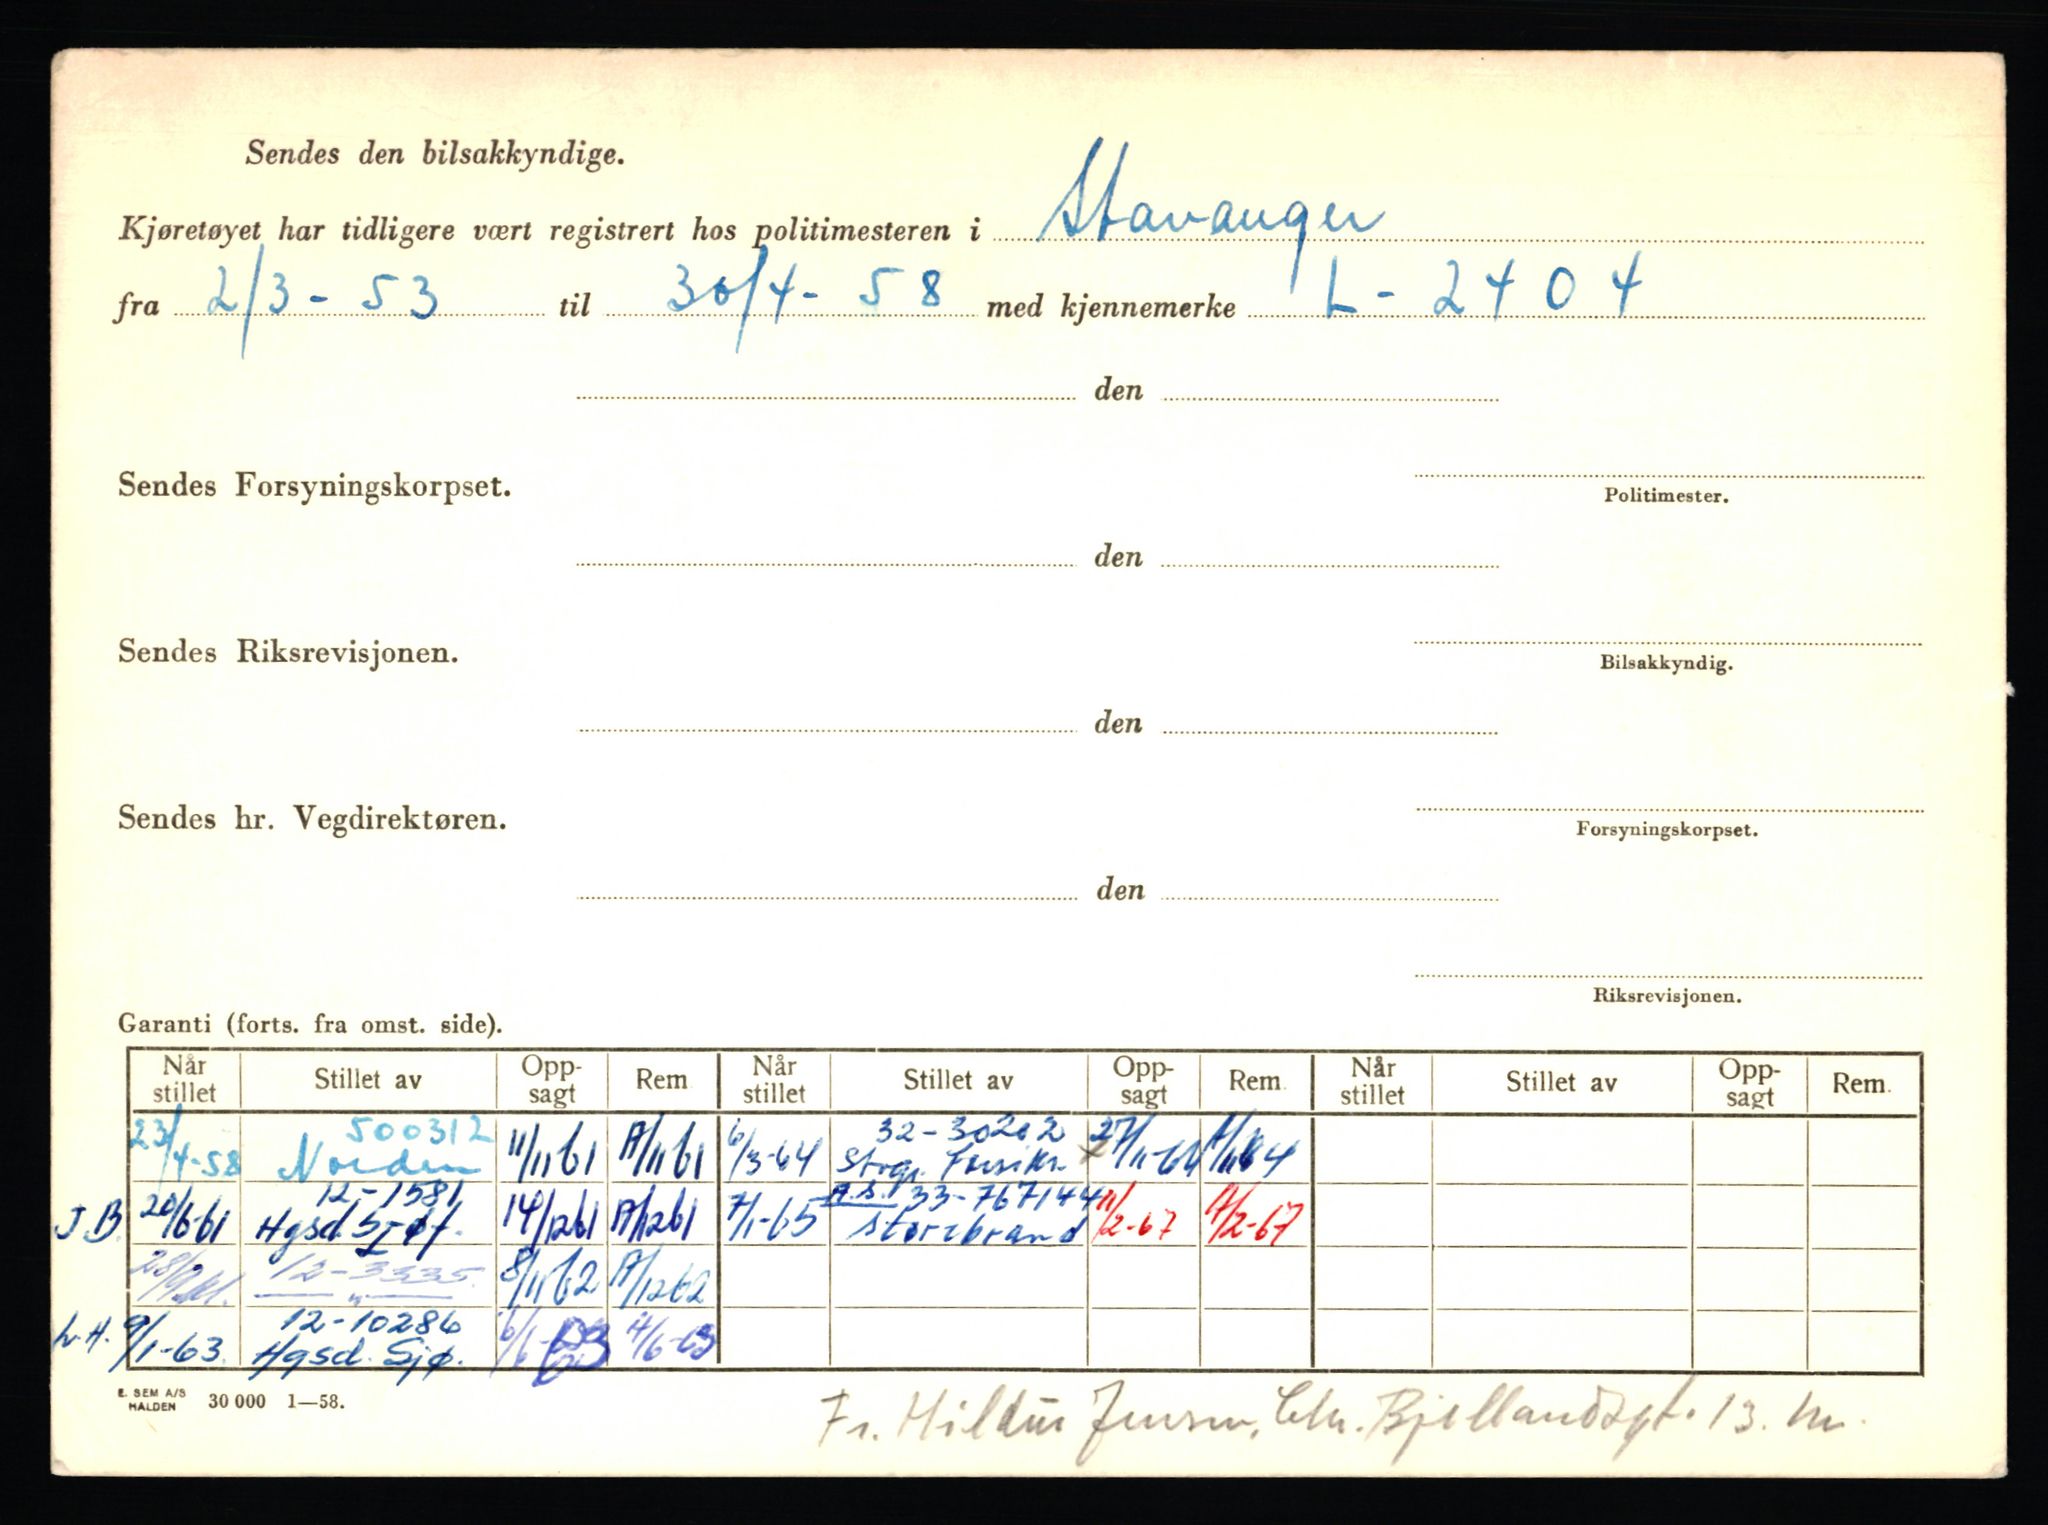 Sendes den bilsakkyndige.
Kjøretøyet har tidligere vært registrert hos politimesteren i Stavanger
fra 2/3 - 53 til 30/4 - 58 med kjennemerke L - 2404
den
Sendes Forsyningskorpset.
Politimester.
den
Sendes Riksrevisjonen.
Bilsakkyndig.
den
Sendes hr. Vegdirektøren.
Forsyningskorpset.
den
Riksrevisjonen.
Garanti (forts. fra omst. side).
Når stillet Stillet av Opp-sagt Rem. Når stillet Stillet av Opp-sagt Rem. Når stillet Stillet av Opp-sagt Rem.
23/4-58 500312 Norden 11/11 61 A/11 61 6/3-64 32-30202 Stvgr. Forsikr. 27/11-64 A/11 64
J.B. 20/6-61 12-1581 Hgsd. Sjøf. 14/12 61 A/12 61 7/1-65 A.S. 33-767144 Storebrand 11/2-67 A/2-67
28/9 12-3335 — " — 8/11 62 A/12 62
L.H. 9/1-63 12-10286 Hgsd. Sjø. 6/6-63 A/6-63
E. SEM A/S HALDEN 30 000 1—58.
Fr. Hildur Jensen, Chr. Bjellandsgt. 13.